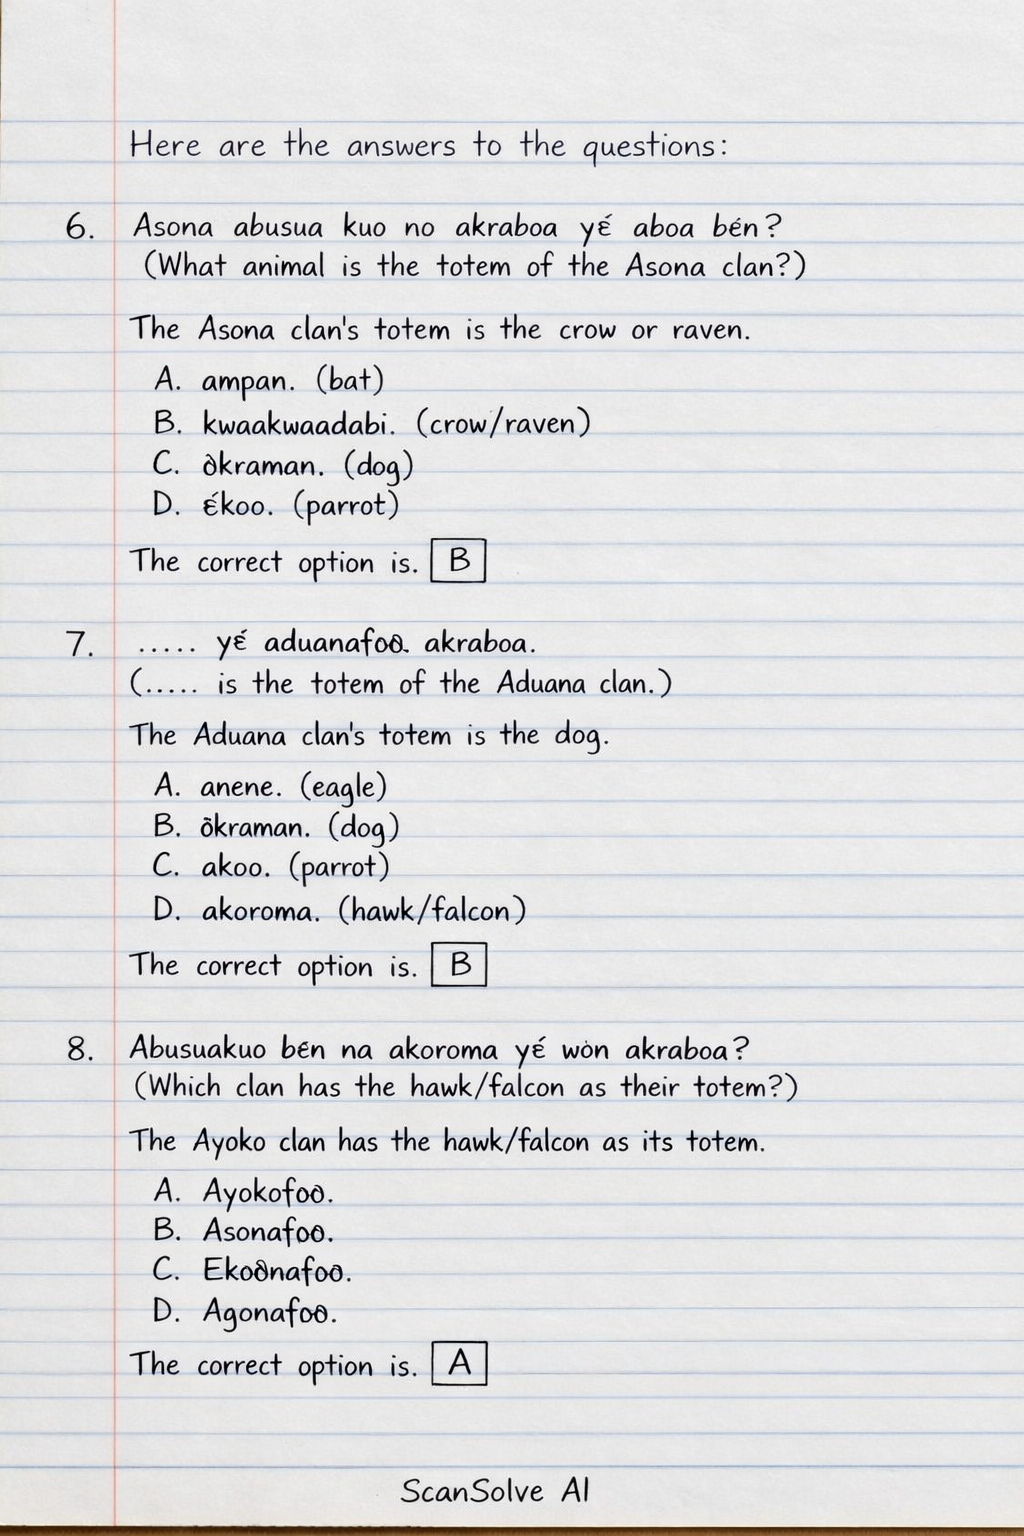 Here are the answers to the questions:
6. Asona abusua kuo no akraboa yɛ́ aboa bén?
(What animal is the totem of the Asona clan?)
The Asona clan's totem is the crow or raven.
A. ampan. (bat)
B. kwaakwaadabi. (crow/raven)
C. òkraman. (dog)
D. ɛ́koo. (parrot)
The correct option is. B
7. ..... yɛ́ aduanafoɔ. akraboa.
(..... is the totem of the Aduana clan.)
The Aduana clan's totem is the dog.
A. anene. (eagle)
B. õkraman. (dog)
C. akoo. (parrot)
D. akoroma. (hawk/falcon)
The correct option is. B
8. Abusuakuo bēn na akoroma yɛ́ wòn akraboa?
(Which clan has the hawk/falcon as their totem?)
The Ayoko clan has the hawk/falcon as its totem.
A. Ayokofoɔ.
B. Asonafoɔ.
C. Ekoɔnafoɔ.
D. Agonafoɔ.
The correct option is. A
ScanSolve AI